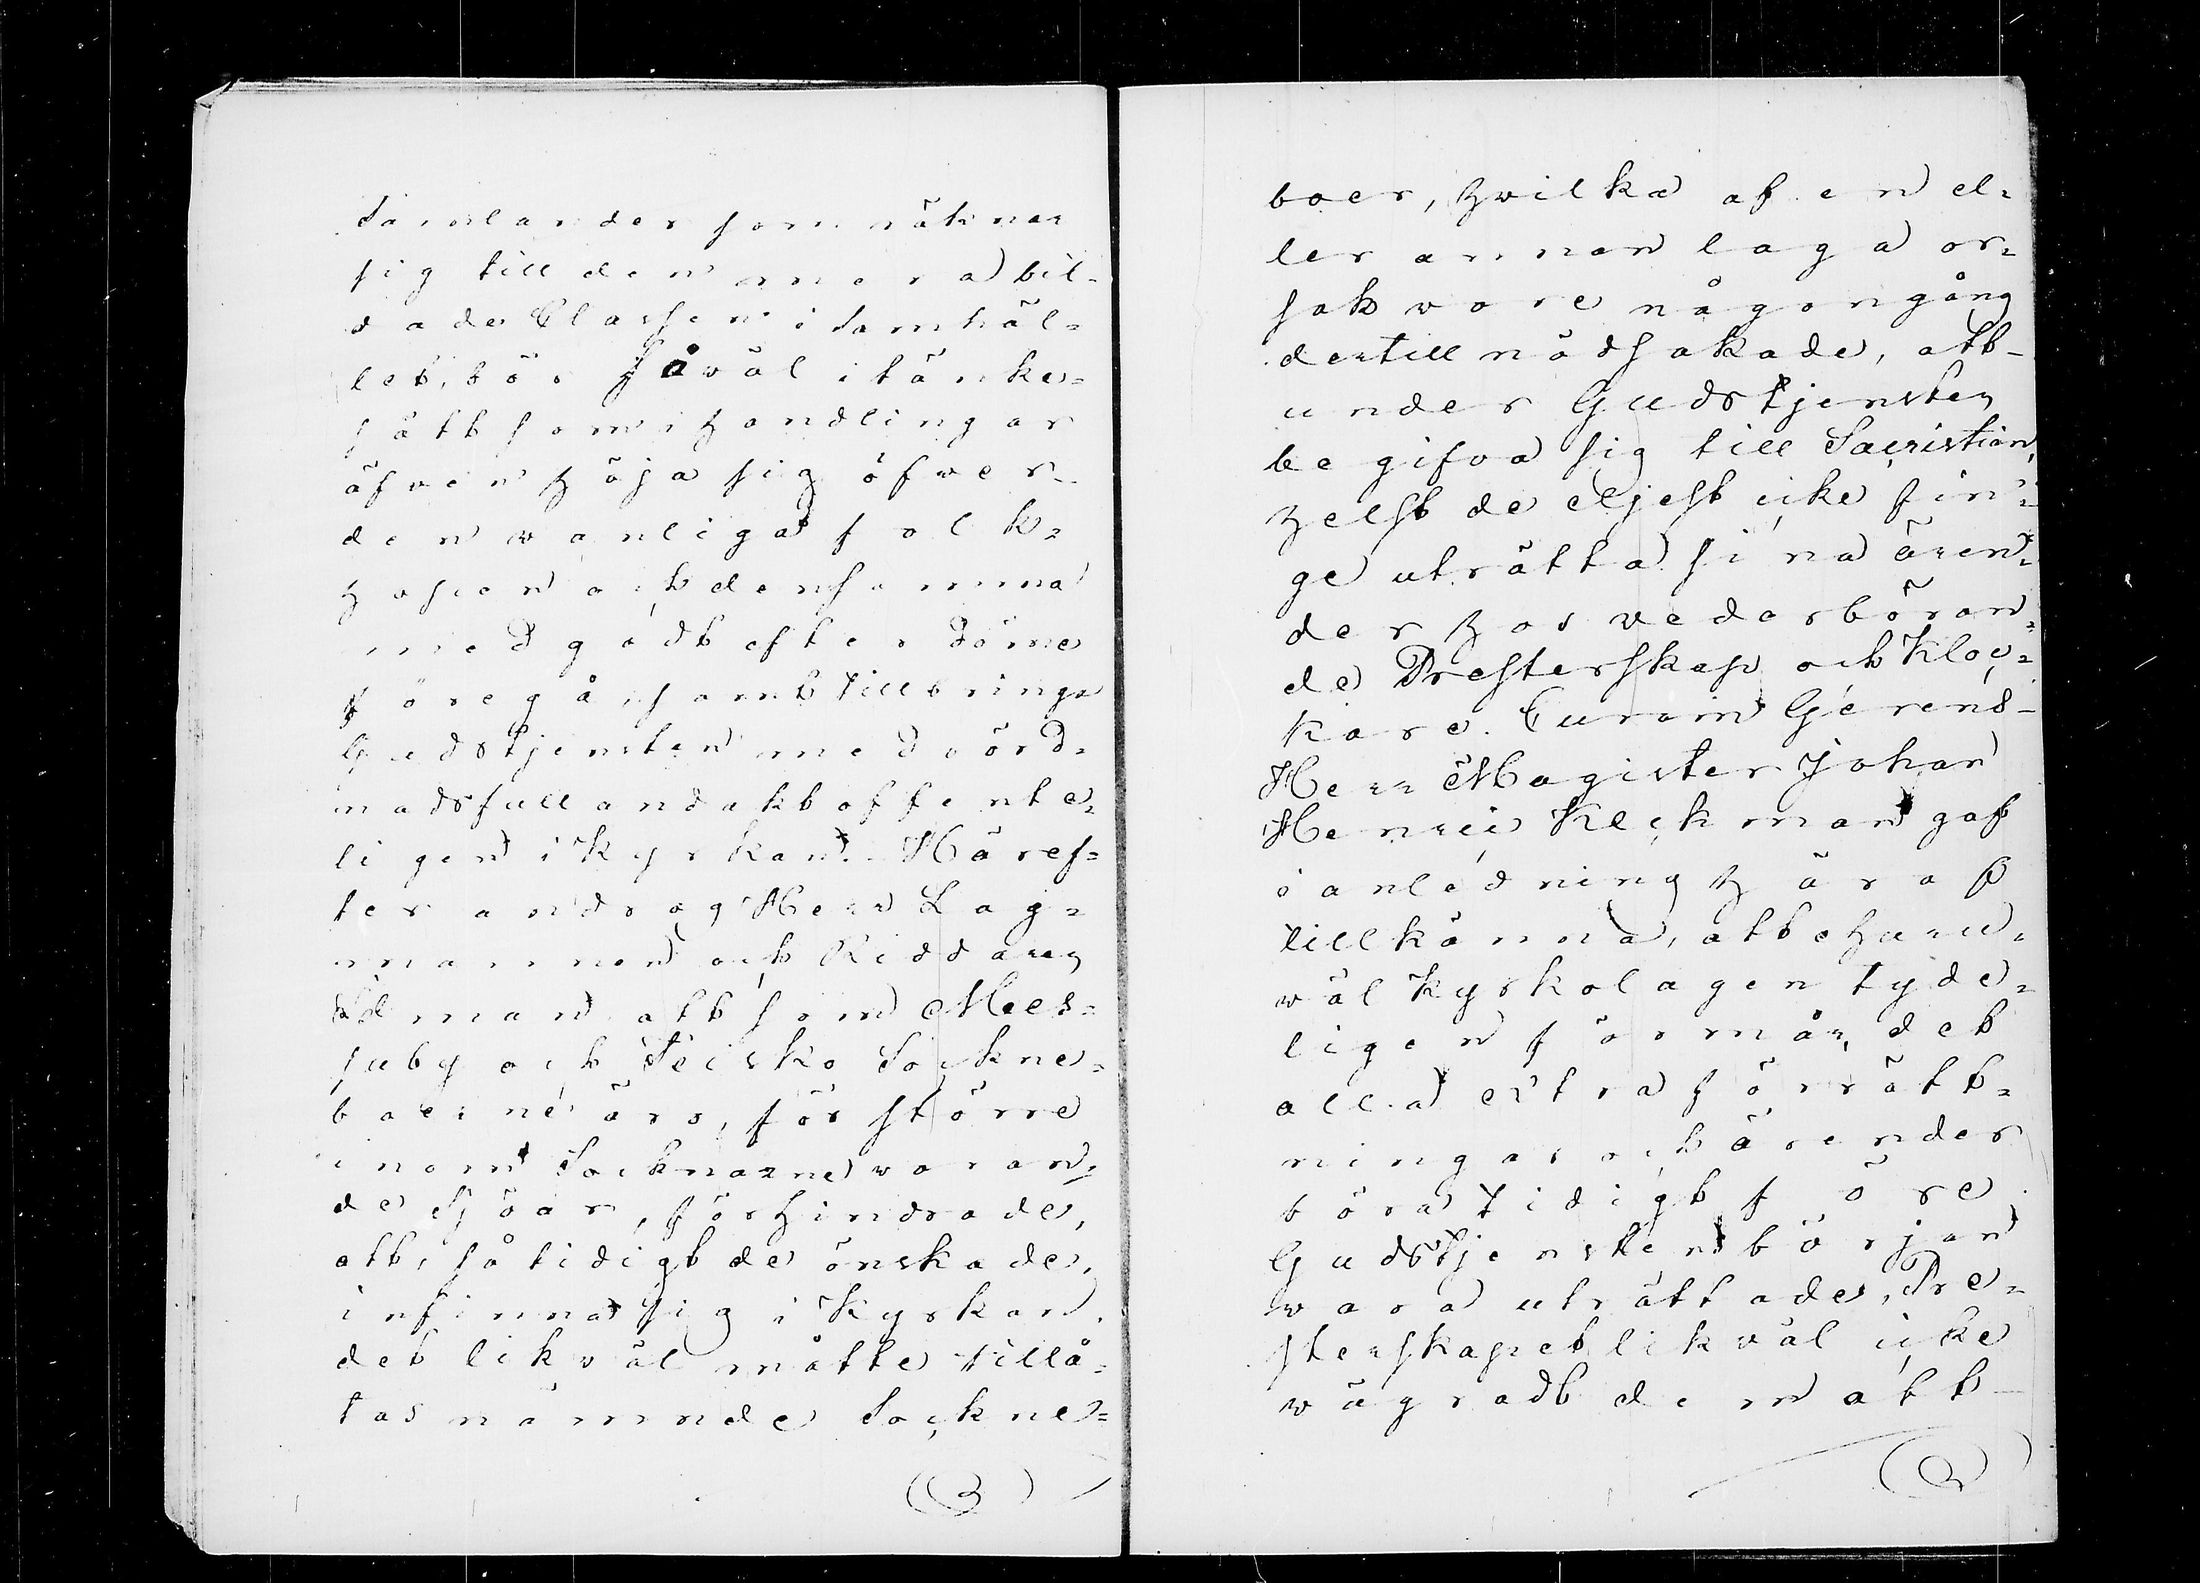 Samlander som räknar
sig till den mera bil-
dade Classen i Samhäl-
let, bör såväl i tänke-
sätt som i handlingar
äfven höja sig öfver
den vanliga folk-
hopen och densamma
med godt efterdöme
föregå, samt tillbringa
Gudstjensten med vörd-
nadsfull andakt offente-
ligen i Kyrkan. Häref-
ter androg Herr Lag-
mannen och Riddaren
Idman att som Mes-
suby och Teisko Sockne-
boerne äro, för större
inom Socknarne varan-
de Sjöar, förhindrade,
att, så tidigt de önskade,
infinna sig i Kyrkan
det likväl måtte tillå-
tas nämnde Sockne-
boer, hvilka af en el-
ler annan laga or-
sak vore någongång
dertill nödsakade, att
under Gudstjensten
begifva sig till Sacristian,
helst de eljest icke fin-
ge uträtta sina ären-
der hos vederböran-
de Presterskap och Kloc-
kare. Curam Gerens
Herr Magister Johan
Henric Keckman gaf
i anledning häraf
tillkänna, att ehuru-
väl Kyrkolagen tyde-
ligen förmår, det
alla extra förrätt-
ningar och ärender
böra tidigt före
Gudstjenstens början
vara uträttade, Pre-
sterskapet likväl icke
vägradt dem att